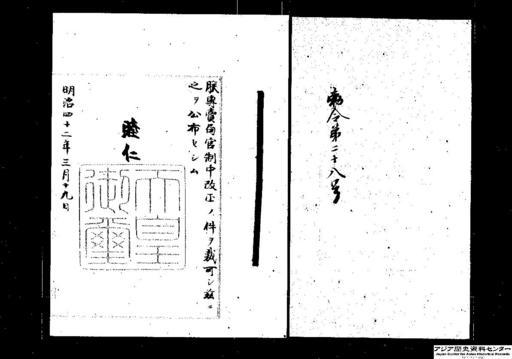 勅令第二十八号
朕専賣局官制中改正ノ件ヲ裁可シ茲ニ
之ヲ公布セシム
睦仁
天皇御璽
明治四十二年三月十九日
アジア歴史資料センター
Japan Center for Asian Historical Records